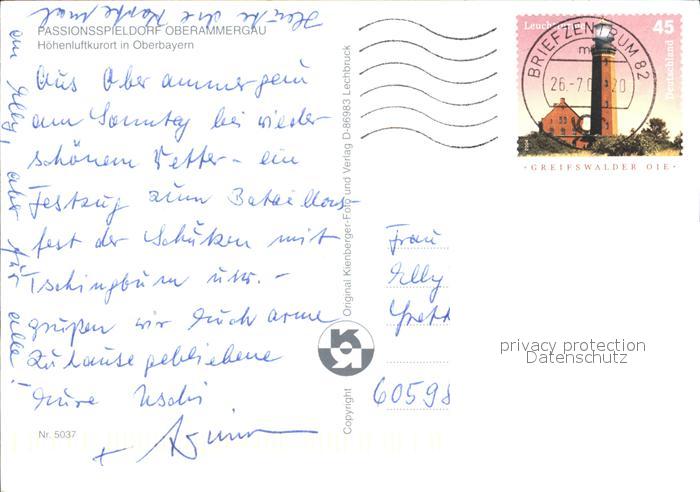 PASSIONSSPIELDORF OBERAMMERGAU
Höhenluftkurort in Oberbayern
Aus Oberammergau
am Sonntag bei wieder
schönem Wetter - ein
Festzug zum Bataillons-
fest der Schützen mit
Tschingbum usw. -
grüßen wir Euch arme
Zuhausegebliebene
Eure Uschi
+
Heute die Karte mal
an Elly, aber für alle!
Nr. 5037
Copyright Original Kienberger-Foto und Verlag D-86983 Lechbruck
Leuch
45
Deutschland
GREIFSWALDER OIE
BRIEFZENTRUM 82
26.-7.0
20
Frau
Elly
60598
privacy protection
Datenschutz